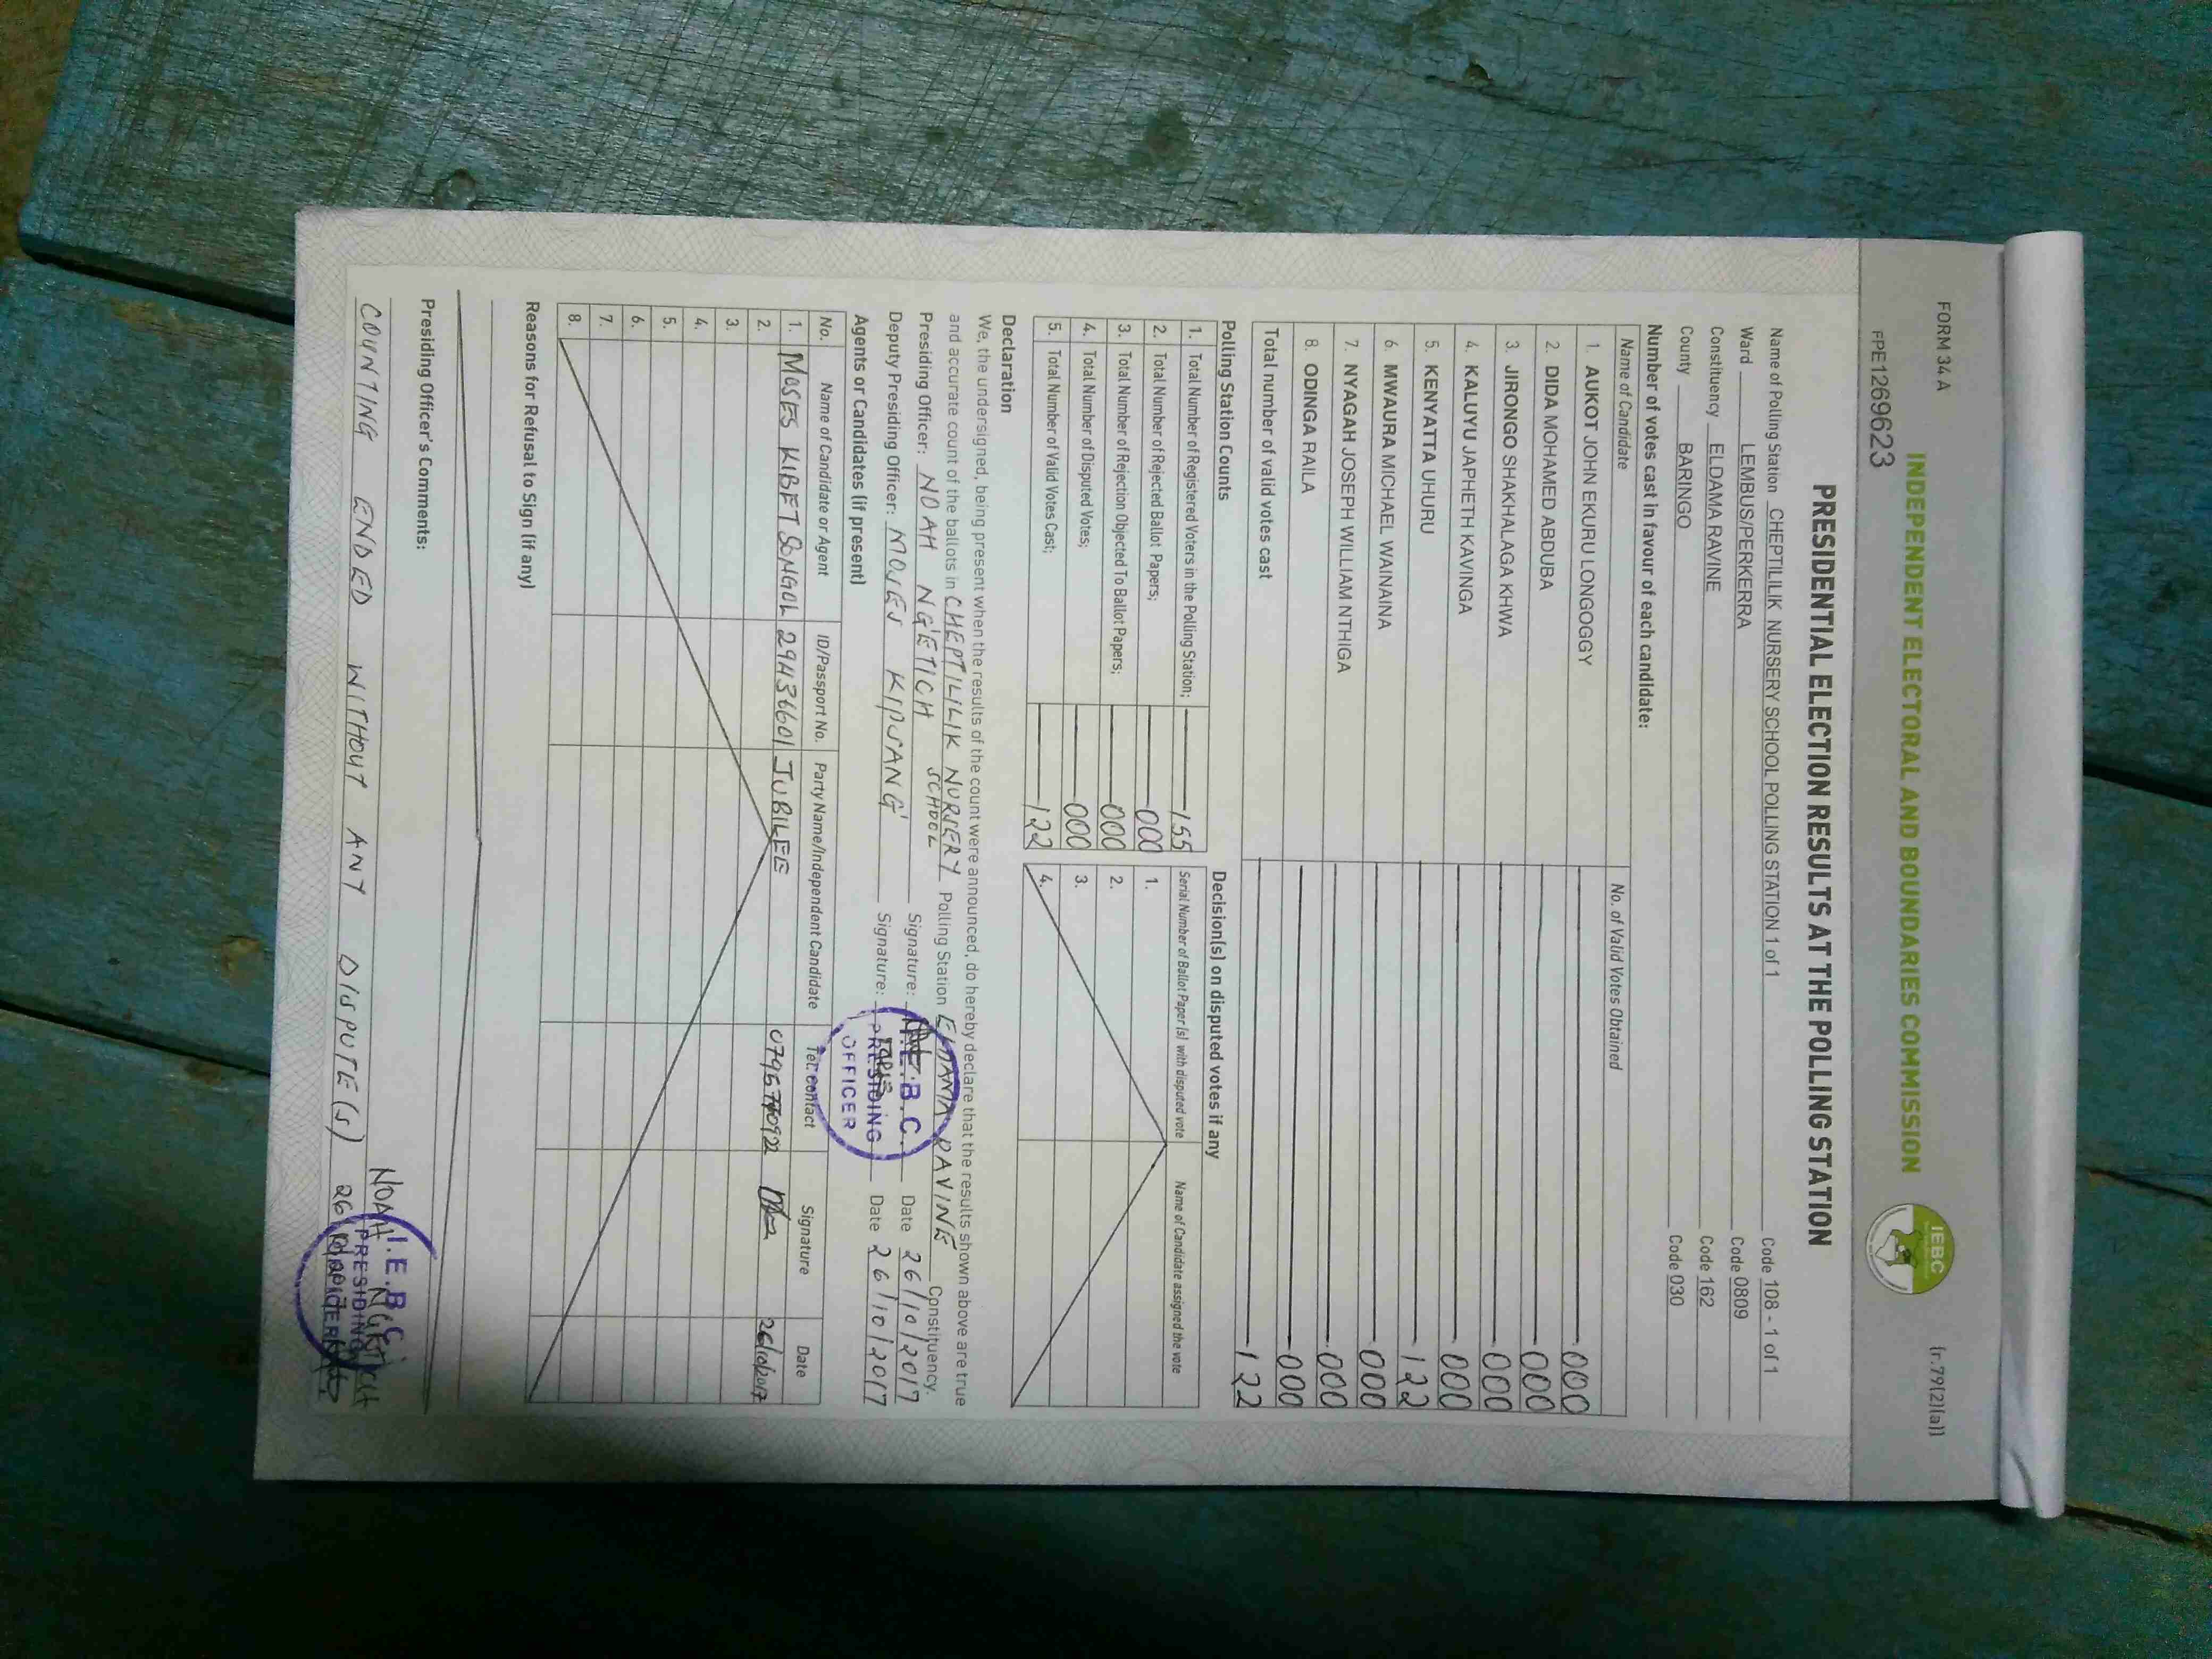 FORM 34A
(r.79(2)(a))
INDEPENDENT ELECTORAL AND BOUNDARIES COMMISSION
IEBC
PE1269623
PRESIDENTIAL ELECTION RESULTS AT THE POLLING STATION
Name of Polling Station CHEPTILILIK NURSERY SCHOOL POLLING STATION 1 of 1 Code 108 - 1 of 1
Ward LEMBUS/PERKERRA Code 0809
Constituency ELDAMA RAVINE Code 162
County BARINGO Code 030
Number of votes cast in favour of each candidate:
Name of Candidate No. of Valid Votes Obtained
1. AUKOT JOHN EKURU LONGOGGY 000
2. DIDA MOHAMED ABDUBA 000
3. JIRONGO SHAKHALAGA KHWA 000
4. KALUYU JAPHETH KAVINGA 000
5. KENYATTA UHURU 122
6. MWAURA MICHAEL WAINAINA 000
7. NYAGAH JOSEPH WILLIAM NTHIGA 000
8. ODINGA RAILA 000
Total number of valid votes cast 122
Polling Station Counts
1. Total Number of Registered Voters in the Polling Station; 155
2. Total Number of Rejected Ballot Papers; 000
3. Total Number of Rejection Objected To Ballot Papers; 000
4. Total Number of Disputed Votes; 000
5. Total Number of Valid Votes Cast; 122
Decision(s) on disputed votes if any
Serial Number of Ballot Paper (s) with disputed vote Name of Candidate assigned the vote
1.
2.
3.
4.
Declaration
We, the undersigned, being present when the results of the count were announced, do hereby declare that the results shown above are true
and accurate count of the ballots in CHEPTILILIK NURSERY SCHOOL Polling Station ELDAMA RAVINE Constituency.
Presiding Officer: NOAH NG'ETICH Signature: Date 26/10/2017
Deputy Presiding Officer: MOSES KIPSANG Signature: Date 26/10/2017
I.E.B.C.
PRESIDING
OFFICER
Agents or Candidates (if present)
No. Name of Candidate or Agent ID/Passport No. Party Name/Independent Candidate Tel: contact Signature Date
1. MOSES KIBET SONGOL JUBILEE 26/10/2017
2.
3.
4.
5.
6.
7.
8.
Reasons for Refusal to Sign (if any)
Presiding Officer's Comments:
COUNTING ENDED WITHOUT ANY DISPUTE(S)
NOAH NGETICH
I.E.B.C.
PRESIDING